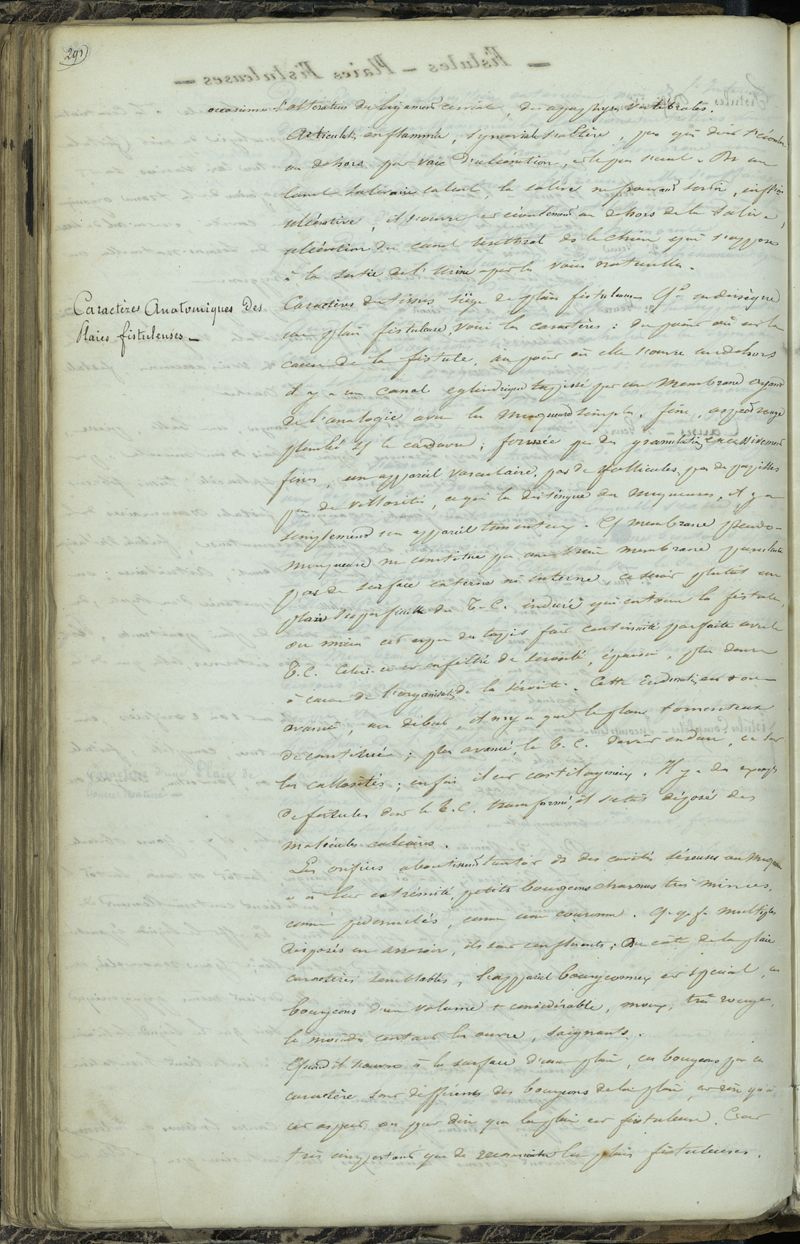 291
occasionne l'altération du ligament cervical, des apophyses vertébrales.
Articulat. enflammée, synoviale s'altère, pus qui doit s'écouler
au dehors par voie d'ulcération, et le pus s'écoul. Ds un
canal salivaire calcul, la salive ne pouvant sortir, inflam
ulcérative, il s'ouvre et écoulement au dehors de la salive,
ulcération du canal urèthral ds le chien qui s'oppose
à la sortie de l'urine par les voies naturelles.
Caractères Anatomiques des
Plaies fistuleuses
Caractères des tissus siège de plaies fistuleuses. Qd on dissèque
une plaie fistuleuse, voici les caractères : du point où est la
cause de la fistule, au point où elle s'ouvre en dehors
il y a un canal cylindrique tapissé par une membrane ayant
de l'analogie avec les muqueuses simples, fine, aspect rouge
plombé sr le cadavre ; formée par des granulations excessivement
fines, un appareil vasculaire, pas de follicules, pas de papilles
pas de villosités, ce qui la distingue des muqueuses, il y a
simplement un appareil tomenteux. Cette membrane pseudo-
muqueuse ne constitue pas une vraie membrane
pas de surface externe ni interne, ce serait plutôt un
plan superficielle du T.C. induré qui entoure la fistule,
ou mieux cet espèce de tapis fait continuité parfaite avec le
T.C. Celui-ci est infiltré de sérosité, épaissi, plus dense
à cause de l'organisat. de la sérosité. Cette indurat. est + ou -
avancée, au début, il n'y a que le plan tomenteux
de constitué ; plus avancé, le T.C. devient endurci, ce sont
les callosités ; enfin il est cartilagineux. Il y a des exemples
de fistules dont le T.C. transformé, il s'était déposé des
molécules calcaires.
Les orifices aboutissent tantôt ds des cavités séreuses ou muqueuses
à leur extrémité, petits bourgeons charnus très minces,
comme pédonculés, comme une couronne. Qq f. multiples
disposés en arrosoir, ils sont confluents ; Du côté de la plaie
caractères semblables, l'appareil bourgeonneux est spécial, ces
bourgeons d'un volume + considérable, moux, très rouges,
le moindre contact les ouvre, saignants.
Quand il s'ouvre à la surface d'une plaie, ces bourgeons par ce
caractère sont différents des bourgeons de la plaie, et rien qu'à
cet aspect on peut dire que la plaie est fistuleuse. C'est
très important que de reconnaître les plaies fistuleuses.